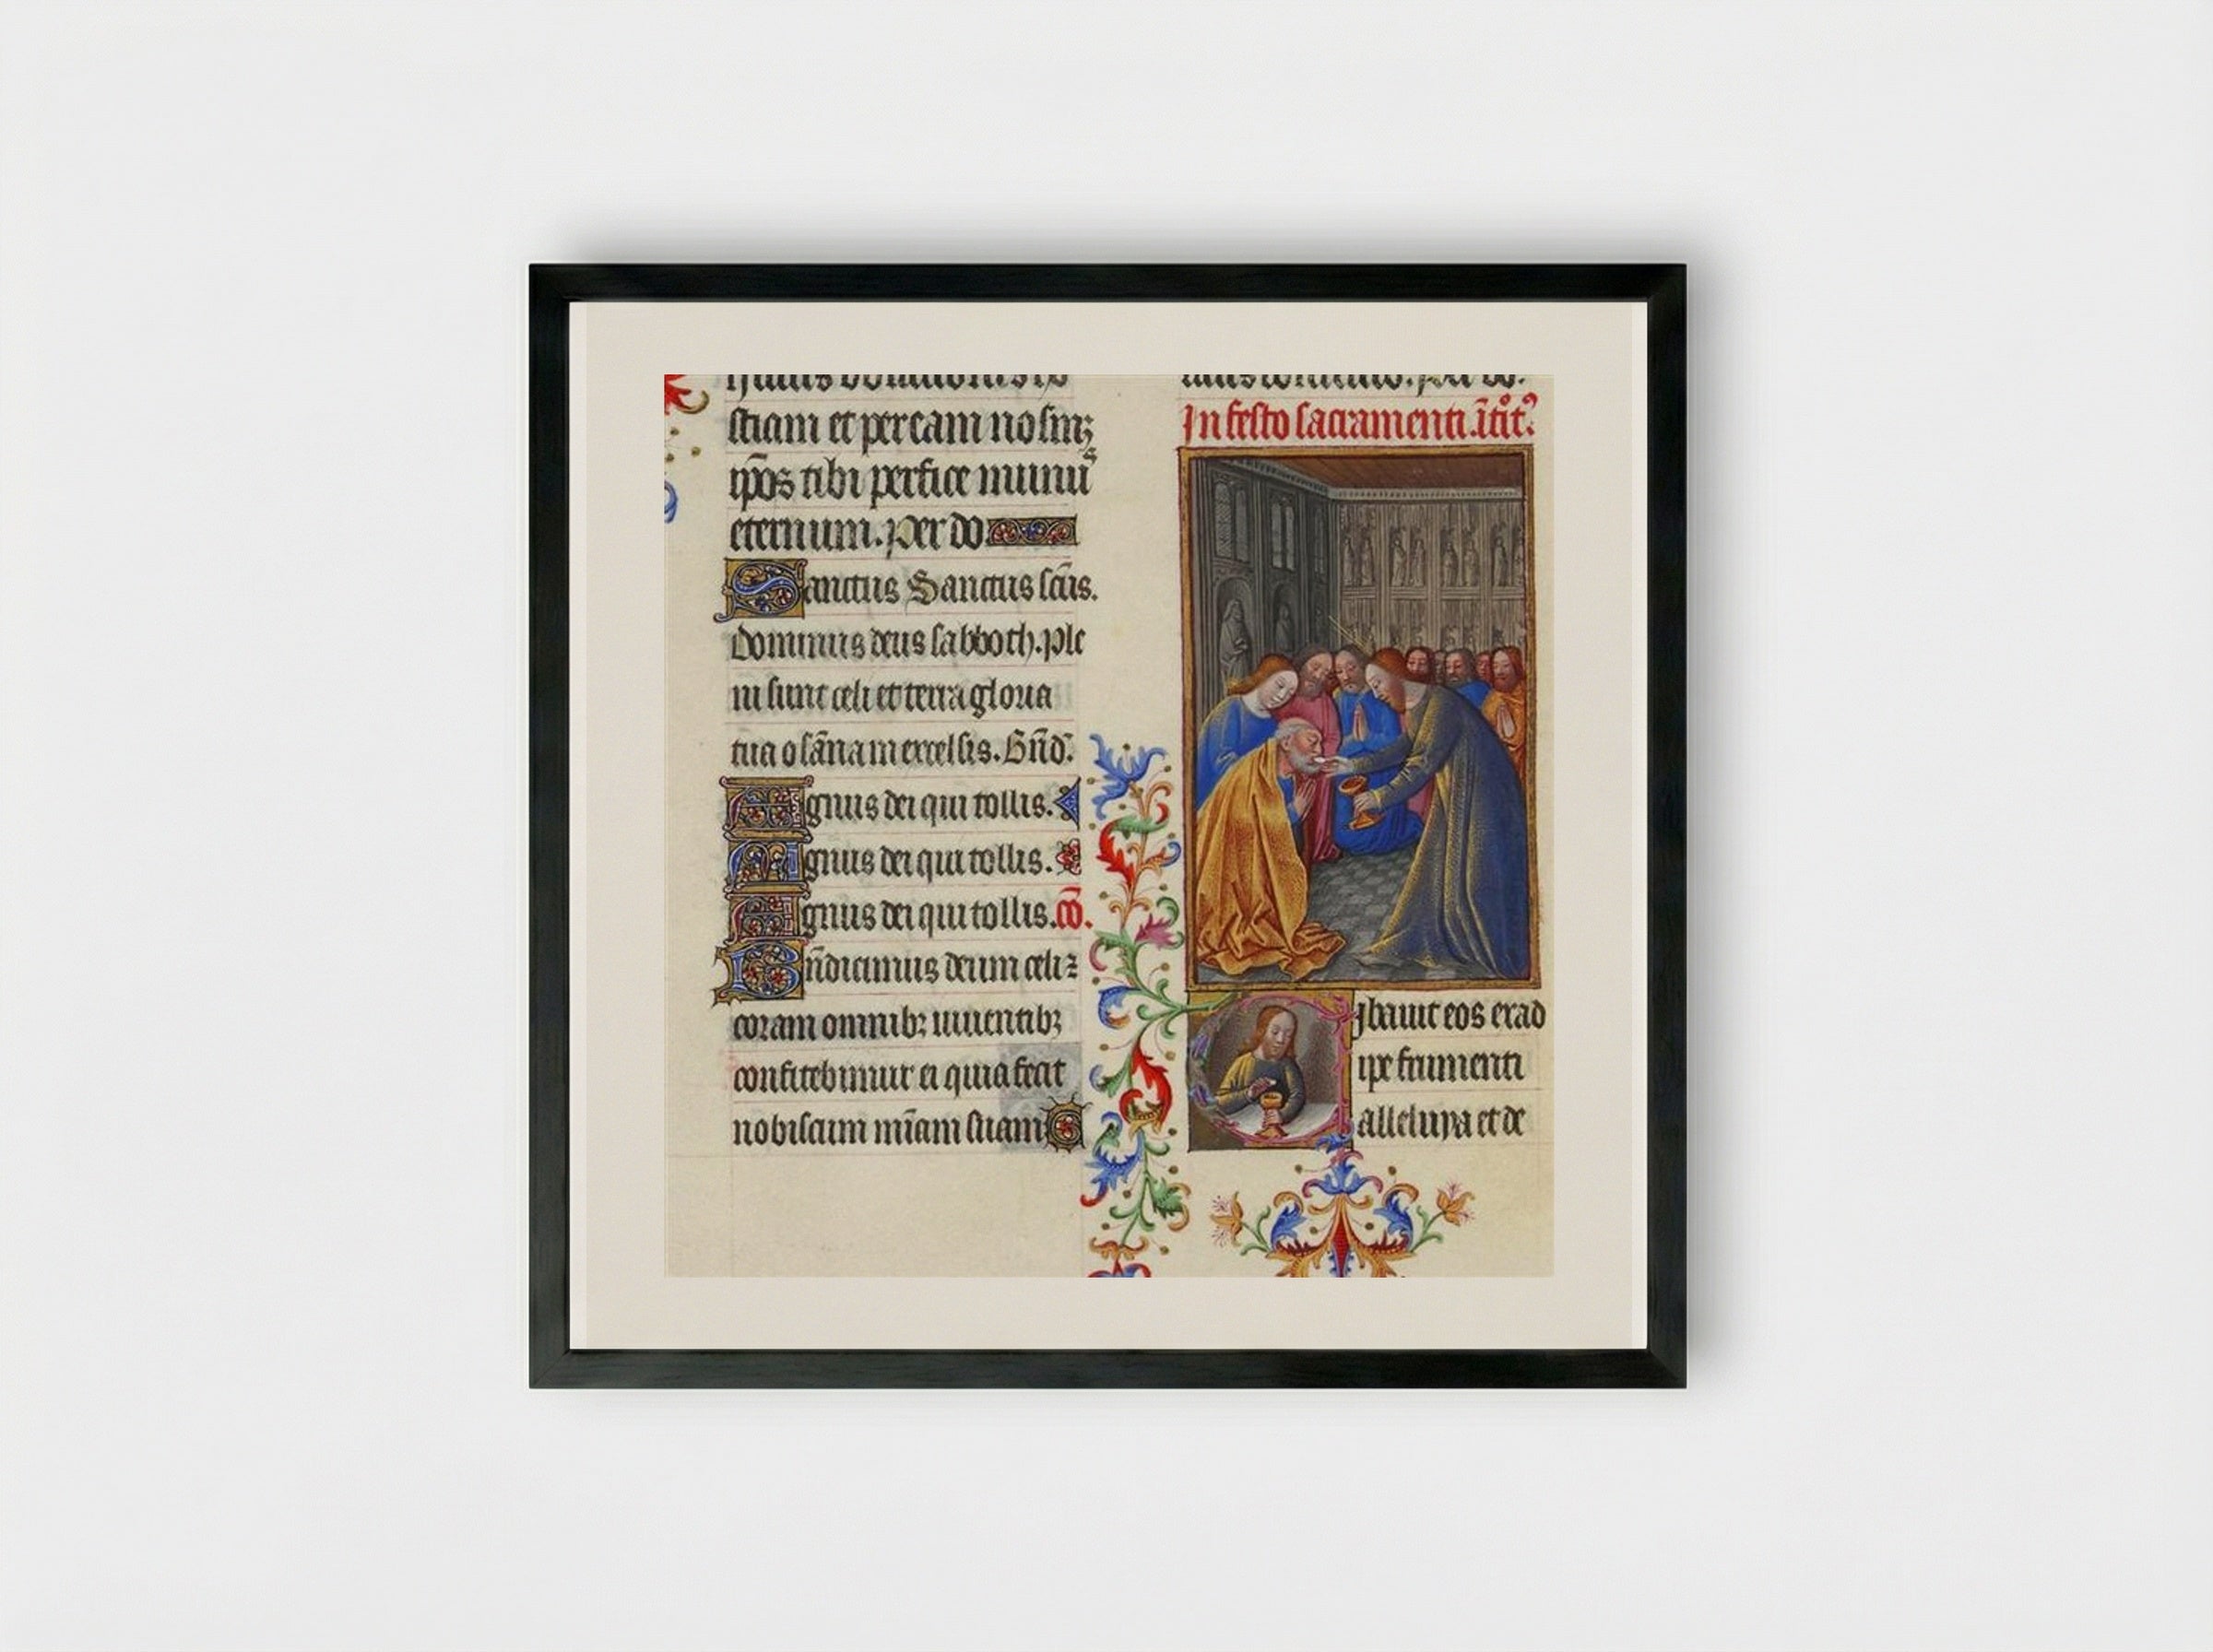 stiam et per eam nosmꝫ
ip̄os tibi perfice munu
eternum. Per do
Sanctus Sanctus sc̄us.
dominus deus sabboth. Ple
ni sunt celi et terra gloria
tua osānam excelsis. Bn̄d.
Agnus dei qui tollis.
Agnus dei qui tollis.
Agnus dei qui tollis. cō.
Bn̄dicimus deum celi ꝛ
coram omnibꝫ uiuentibꝫ
confitebimur ei quia fecit
nobiscum mīam suam
In festo sacramenti.
Cibauit eos exad
ipe frumenti
alleluya et de